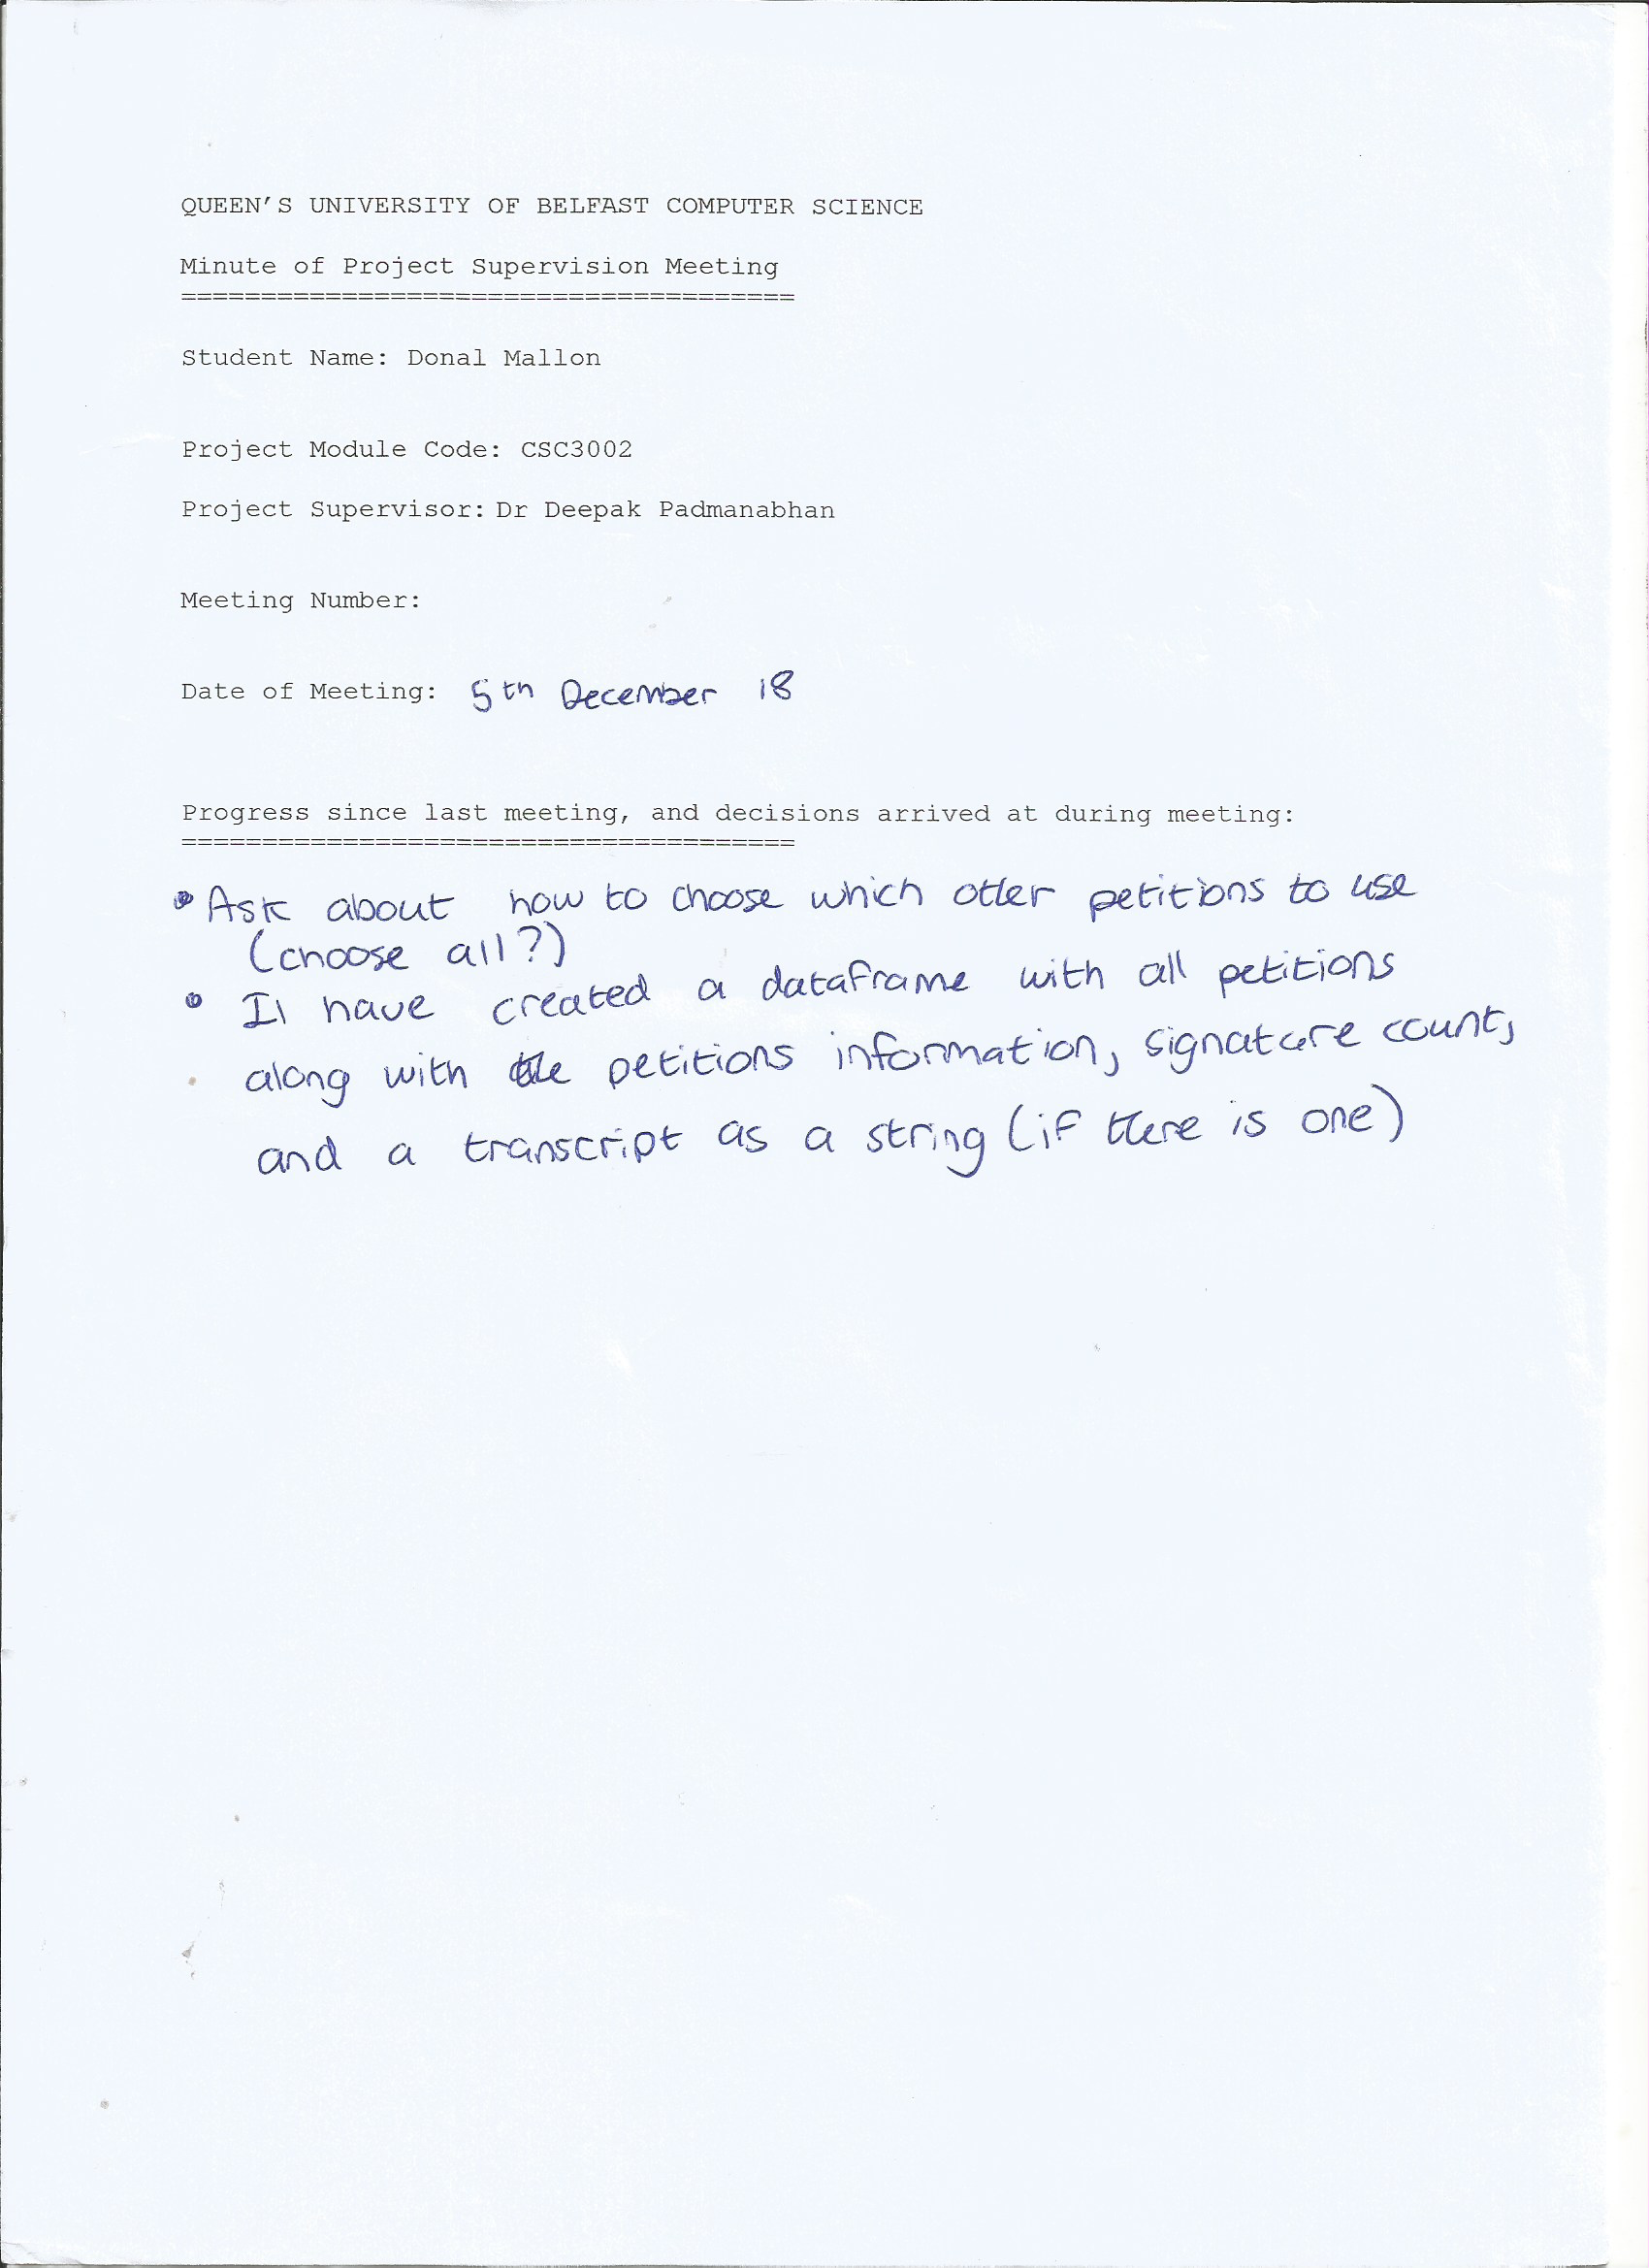 QUEEN'S UNIVERSITY OF BELFAST COMPUTER SCIENCE
Minute of Project Supervision Meeting
======================================
Student Name: Donal Mallon
Project Module Code: CSC3002
Project Supervisor: Dr Deepak Padmanabhan
Meeting Number:
Date of Meeting: 5th December 18
Progress since last meeting, and decisions arrived at during meeting:
======================================
• Ask about how to choose which other petitions to use
(choose all?)
• I have created a dataframe with all petitions
along with the petitions information, signature count,
and a transcript as a string (if there is one)